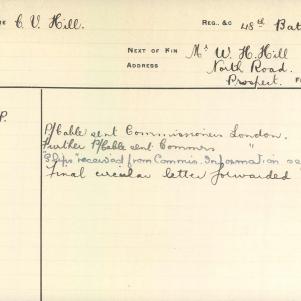 C. V. Hill. REG. &C 48th Bat
NEXT OF KIN Mr W. H. Hill
ADDRESS North Road.
Prospect.
P.
P/Cable sent Commissioner London.
Further P/Cable sent Commrs "
"Slips" received from Commis. Information
final circular letter forwarded